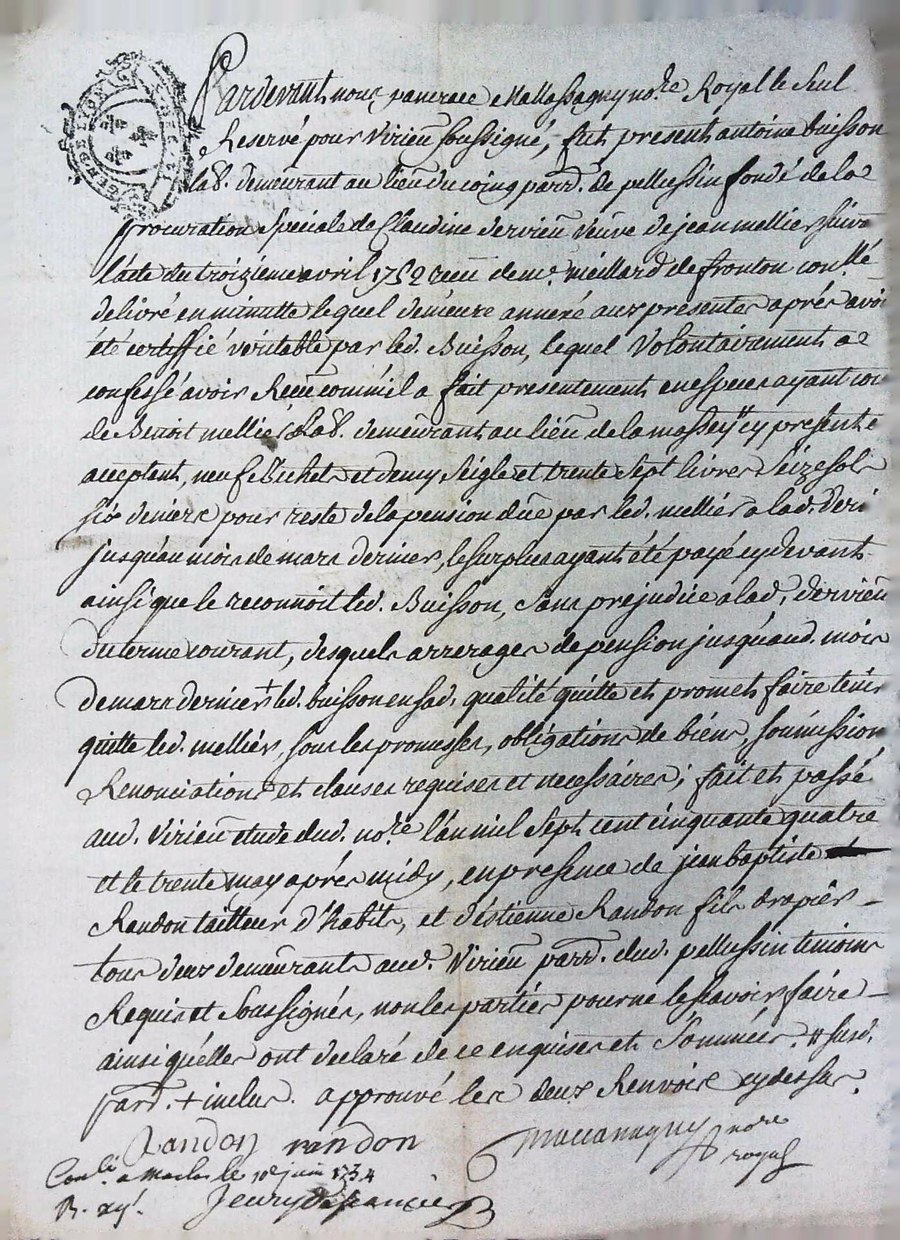 GEN. DE LION
Pardevant nous pancrace Mallassagny no.re Royal le seul
Reservé pour Virieu soussigné, fut present antoine buisson
lab.r demeurant au lieu du coing parr.e de pellussin fondé de la
procuration speciale de Claudine dervieu veuve de jean mellier suiva
l'acte du troizieme avril 1752 receu de m.e méillard de fronton con.llé
delivré en minutte lequel demeure annexé aux presentes aprés avoi
été certiffié véritable par led. Buisson, lequel Volontairement a
confessé avoir Receu comme il a fait presentement en especes ayant cou
de Benoit mellier lab.r demeurant au lieu de la massey # cy present e
acceptant, neuf Bichets et demy seigle et trente sept livres seize sols
six deniers pour reste de la pension düe par led. mellier a lad. dervi
jusqu'au mois de mars dernier, le surplus ayant été payé cy devant
ainsi que le reconnoit led. Buisson, sans prejudice a lad. dervieu
du terme courant, desquels arrerages de pension jusqu'aud. mois
de mars dernier + led. buisson en sad. qualité quitte et promet faire tenir
quitte led. mellier, sous les promesses, obligations de biens, soumission
Renonciations et clauses requises et necessaires; fait et passé
aud. Virieu etude dud. no.re l'an mil sept cent cinquante quatre
et le trente may aprés midy, en presence de jean baptiste
Randon tailleur d'habits, et d'éstienne Randon fils drapier
tous deux demeurants aud. Virieu parr.e dud. pellussin temoins
Requis et soussignés, non les parties pour ne le sçavoir faire
ainsi qu'elles ont declaré de ce enquises et sommées. # susd.
parr. + inclus. approuvé les deux Renvois cy dessus.
Randon randon
no.re
royal
Con.lé a Maclas le 10 juin 1754
R.